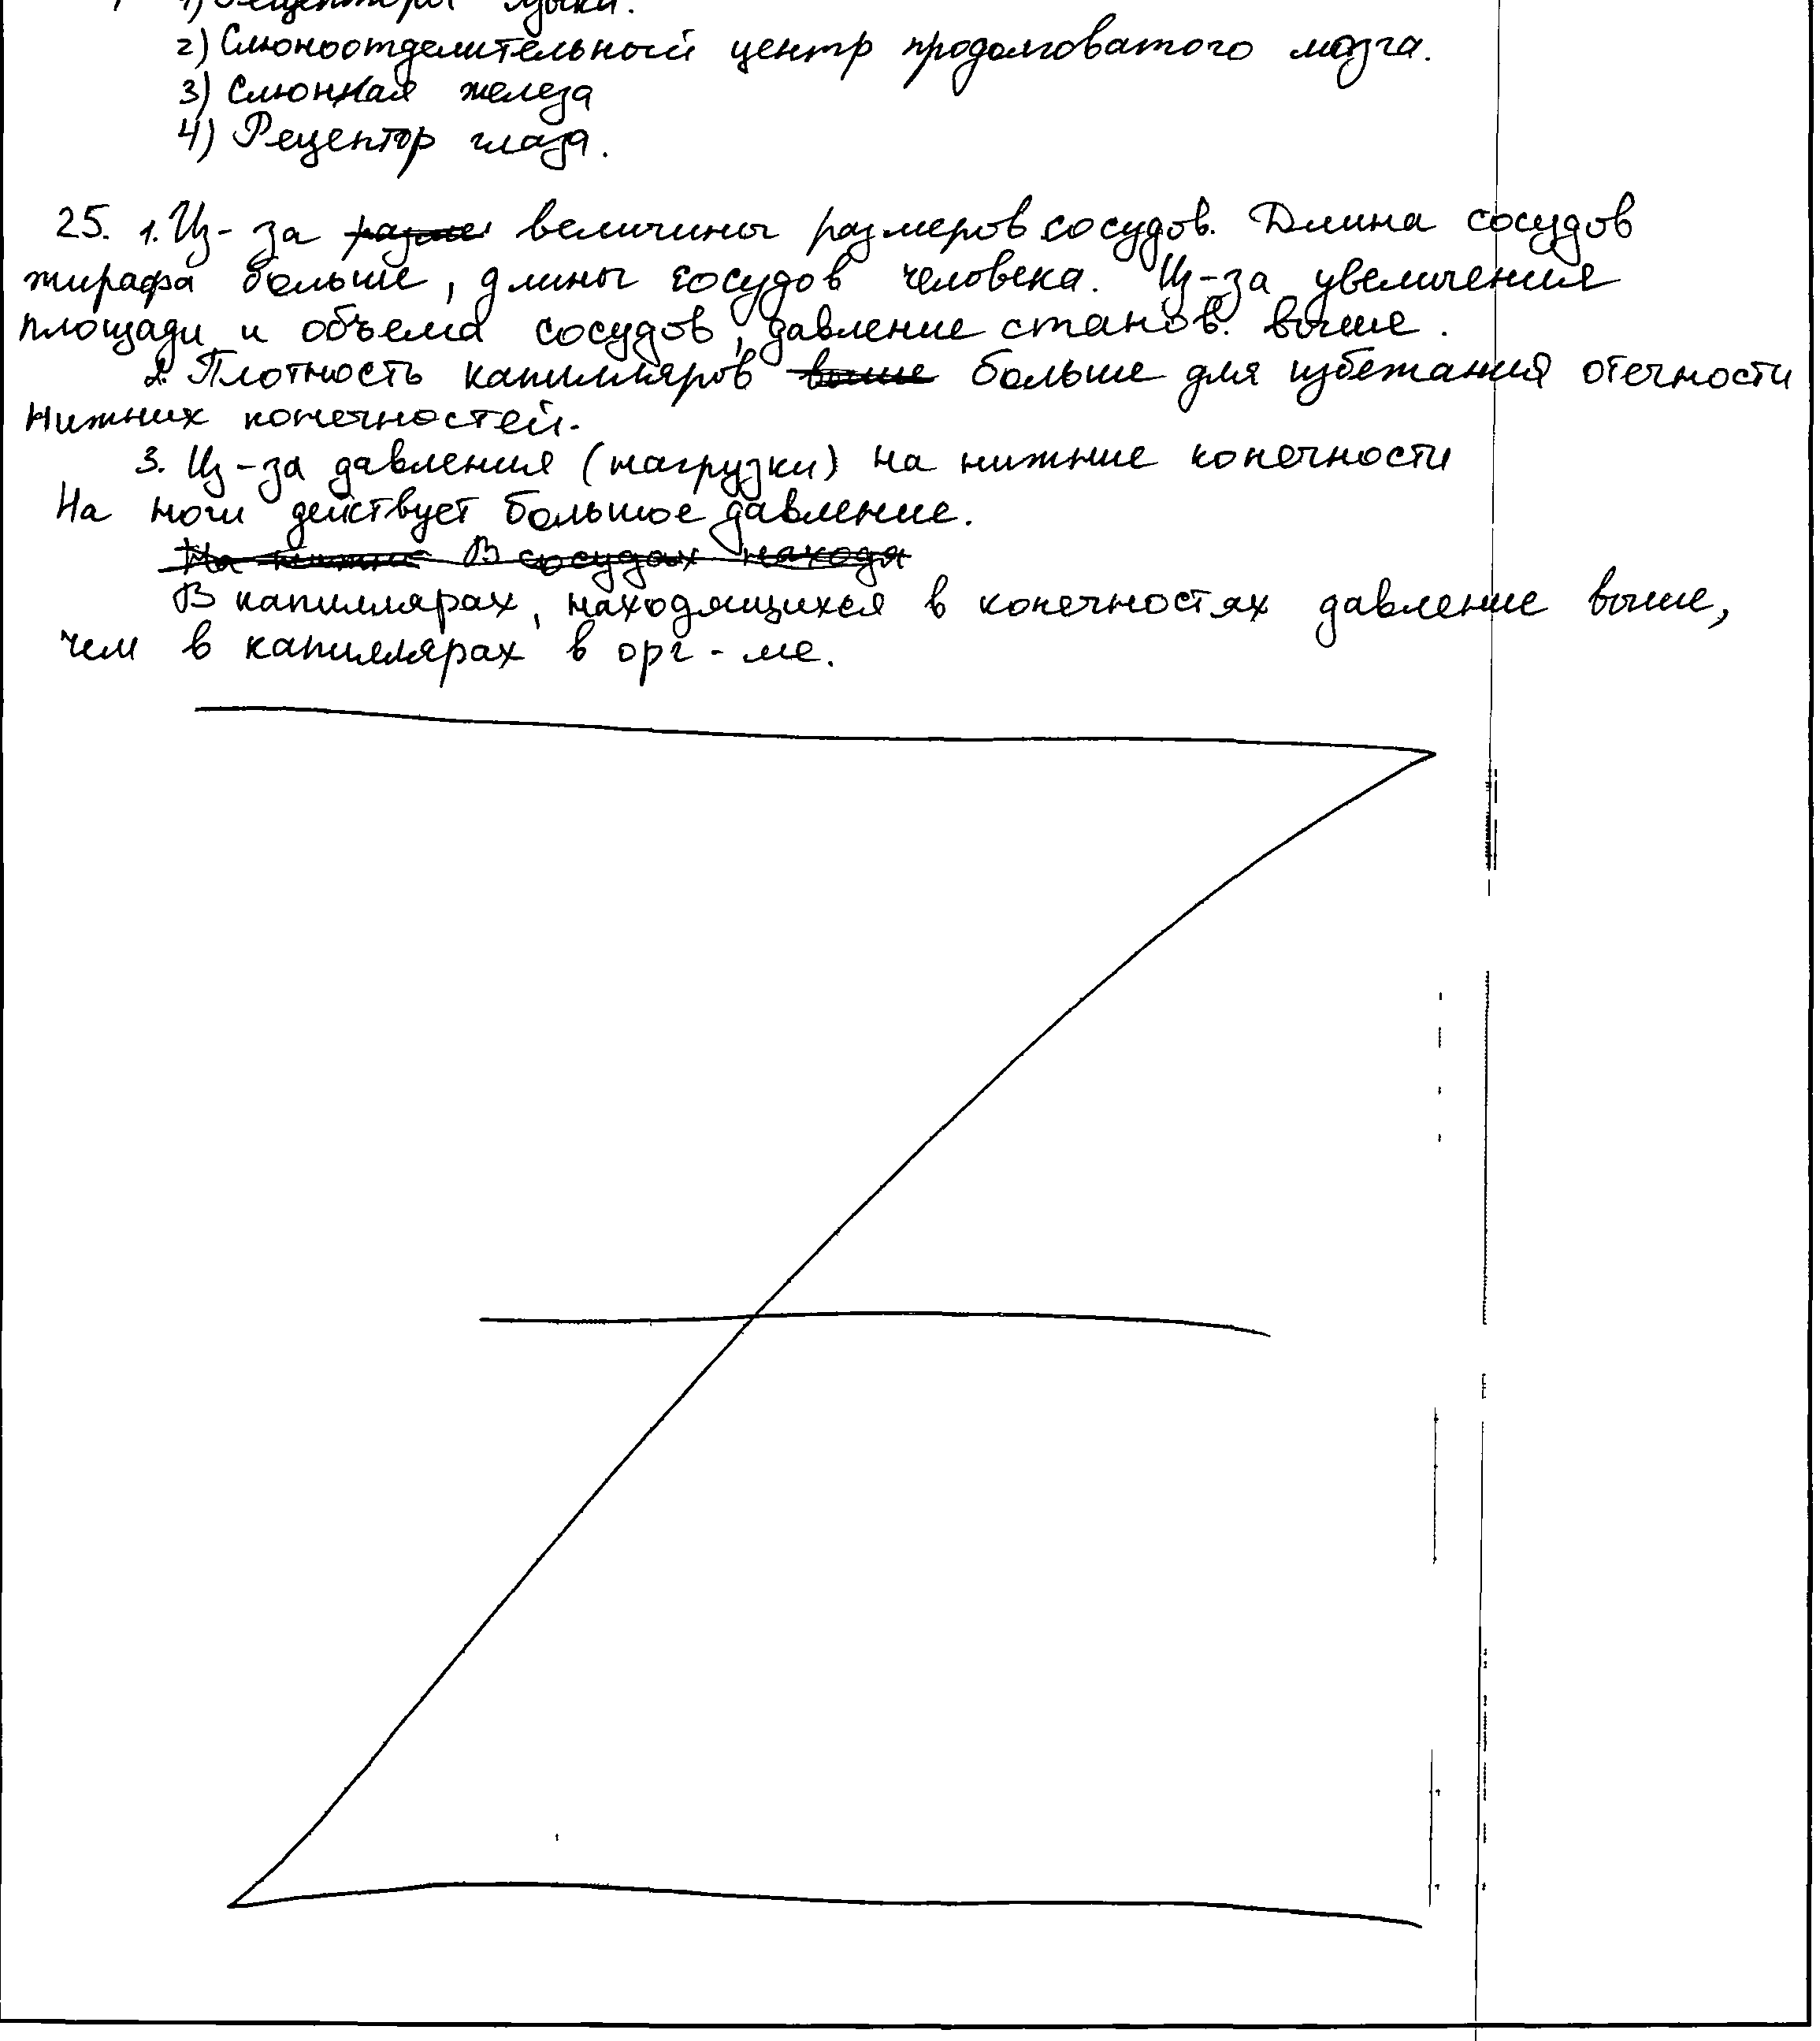 1) Рецепторы языка.
2) Слюноотделительный центр продолговатого мозга.
3) Слюнная железа
4) Рецептор глаза.
25. 1. Из-за величины размеров сосудов. Длина сосудов
жирафа больше, длины сосудов человека. Из-за увеличения
площади и объема сосудов, давление станов. выше.
2. Плотность капилляров выше больше для избежания отечности
нижних конечностей.
3. Из-за давления (нагрузки) на нижние конечности
На ноги действует большое давление.
В сосудах находя
В капиллярах, находящихся в конечностях давление выше,
чем в капиллярах в орг-ме.